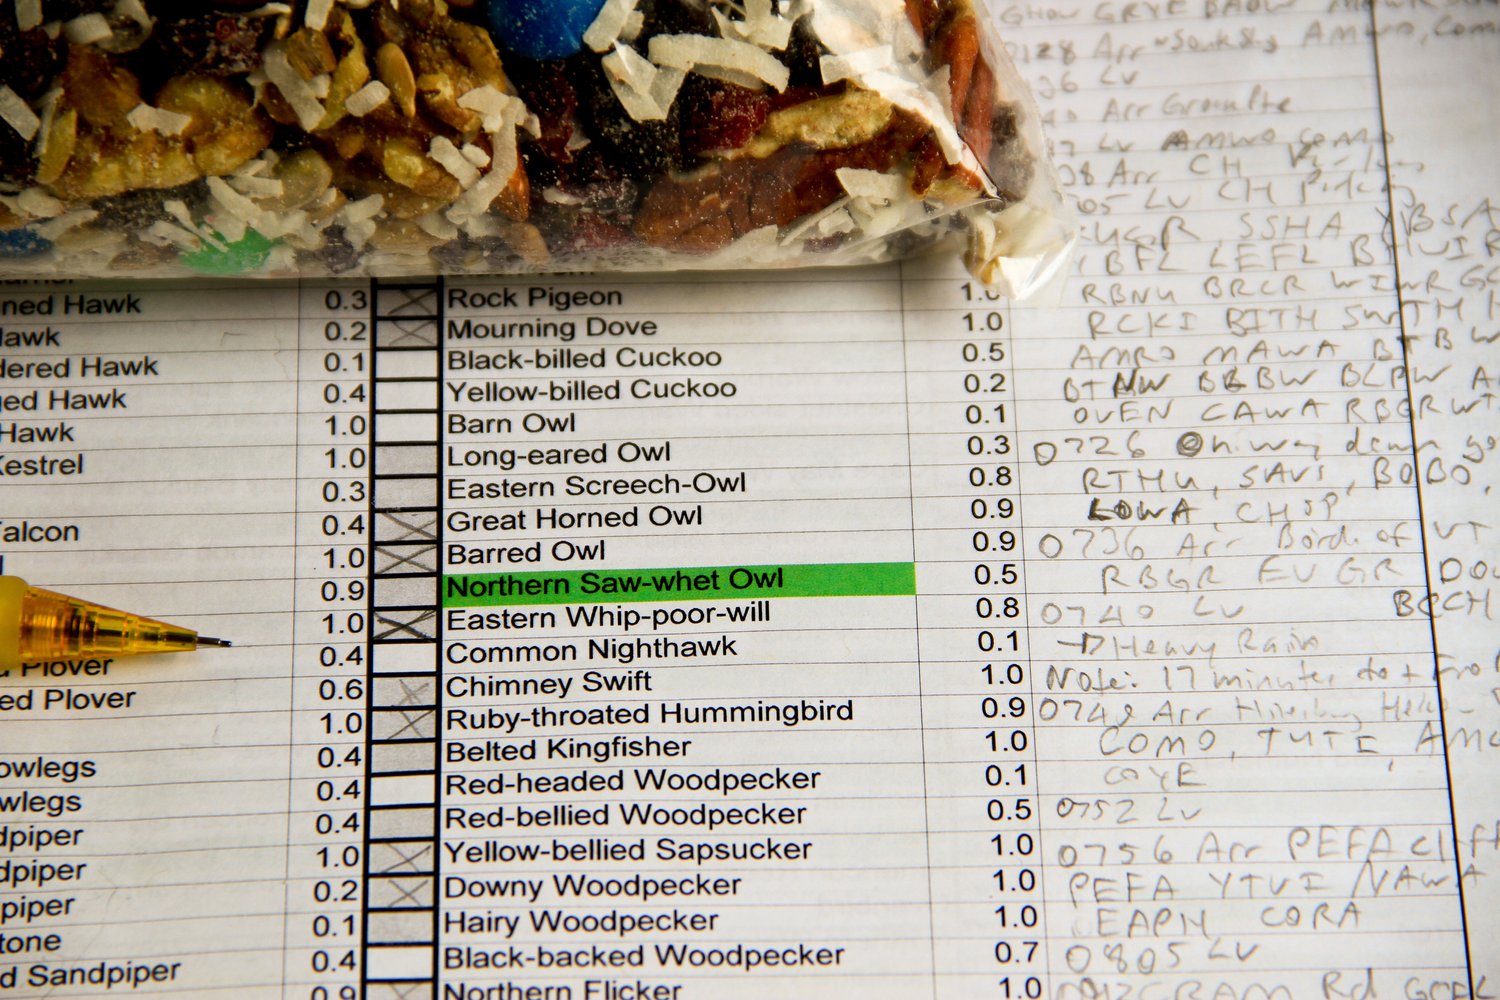 ned Hawk 0.3 Rock Pigeon 1.0
awk 0.2 Mourning Dove 1.0
dered Hawk 0.1 Black-billed Cuckoo 0.5
ged Hawk 0.4 Yellow-billed Cuckoo 0.2
Hawk 1.0 Barn Owl 0.1
Kestrel 1.0 Long-eared Owl 0.3
0.3 Eastern Screech-Owl 0.8
alcon 0.4 Great Horned Owl 0.9
1.0 Barred Owl 0.9
0.9 Northern Saw-whet Owl 0.5
1.0 Eastern Whip-poor-will 0.8
Plover 0.4 Common Nighthawk 0.1
ed Plover 0.6 Chimney Swift 1.0
1.0 Ruby-throated Hummingbird 0.9
owlegs 0.4 Belted Kingfisher 1.0
wlegs 0.4 Red-headed Woodpecker 0.1
dpiper 0.4 Red-bellied Woodpecker 0.5
dpiper 1.0 Yellow-bellied Sapsucker 1.0
piper 0.2 Downy Woodpecker 1.0
tone 0.1 Hairy Woodpecker 1.0
d Sandpiper 0.4 Black-backed Woodpecker 0.7
0.9 Northern Flicker 1.0
Lv
Arr
Lv AMWO
Arr CH
Lv CH
SSHA YBSA
YBFL LEFL
RBNU BRCR WIWR
RCKI BITH SWTH
AMRO MAWA BTBW
BTNW BBBW BLPW
OVEN CAWA RBGR WT
0726 On way down
RTHU, SAVS, BOBO,
LOWA, CHSP
0736 Arr Bird. of VT
RBGR EVGR DOW
0740 Lv BCCH
→ Heavy Rain
Note: 17 minutes to + fro
Arr
COMO, TUTI
COYE
0752 Lv
0756 Arr PEFA cliff
PEFA YTVI NAWA
EAPH CORA
0805 Lv
Rd